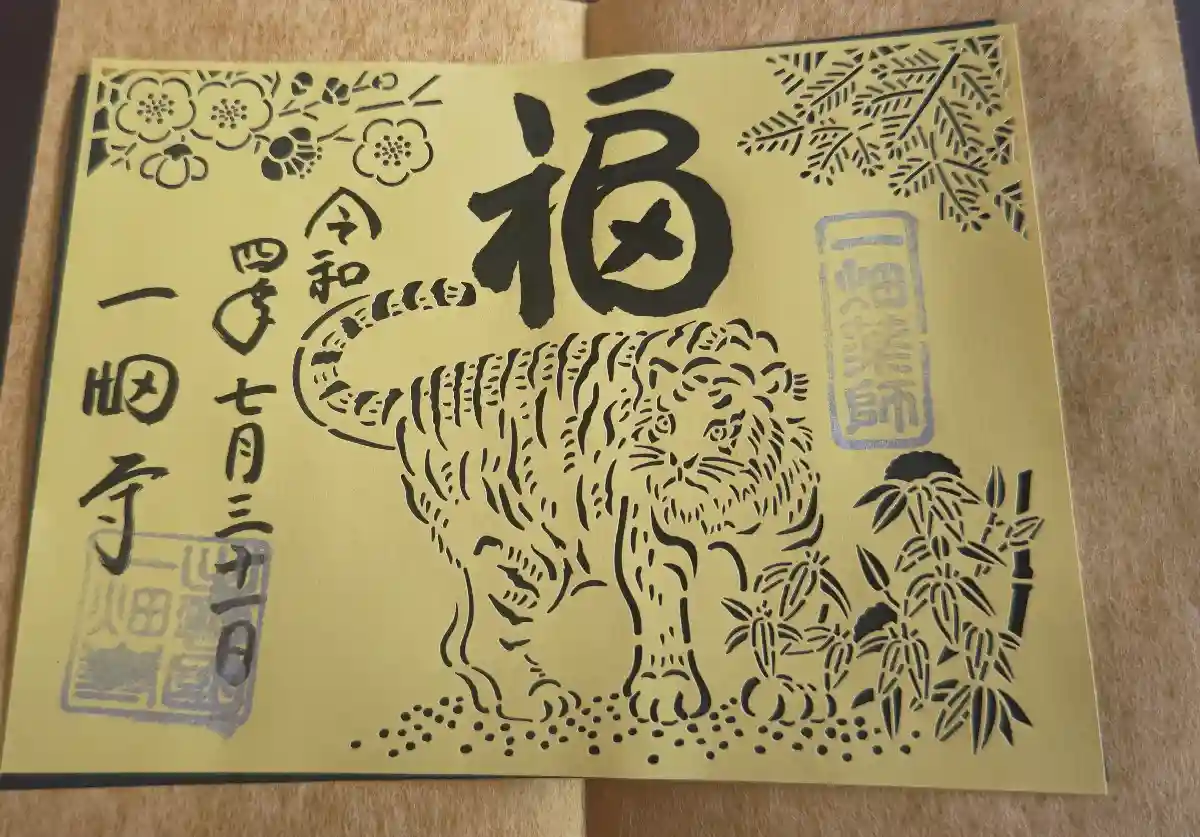 一畑薬師
福
令和
四年七月三十一日
一畑寺
出雲國
一畑